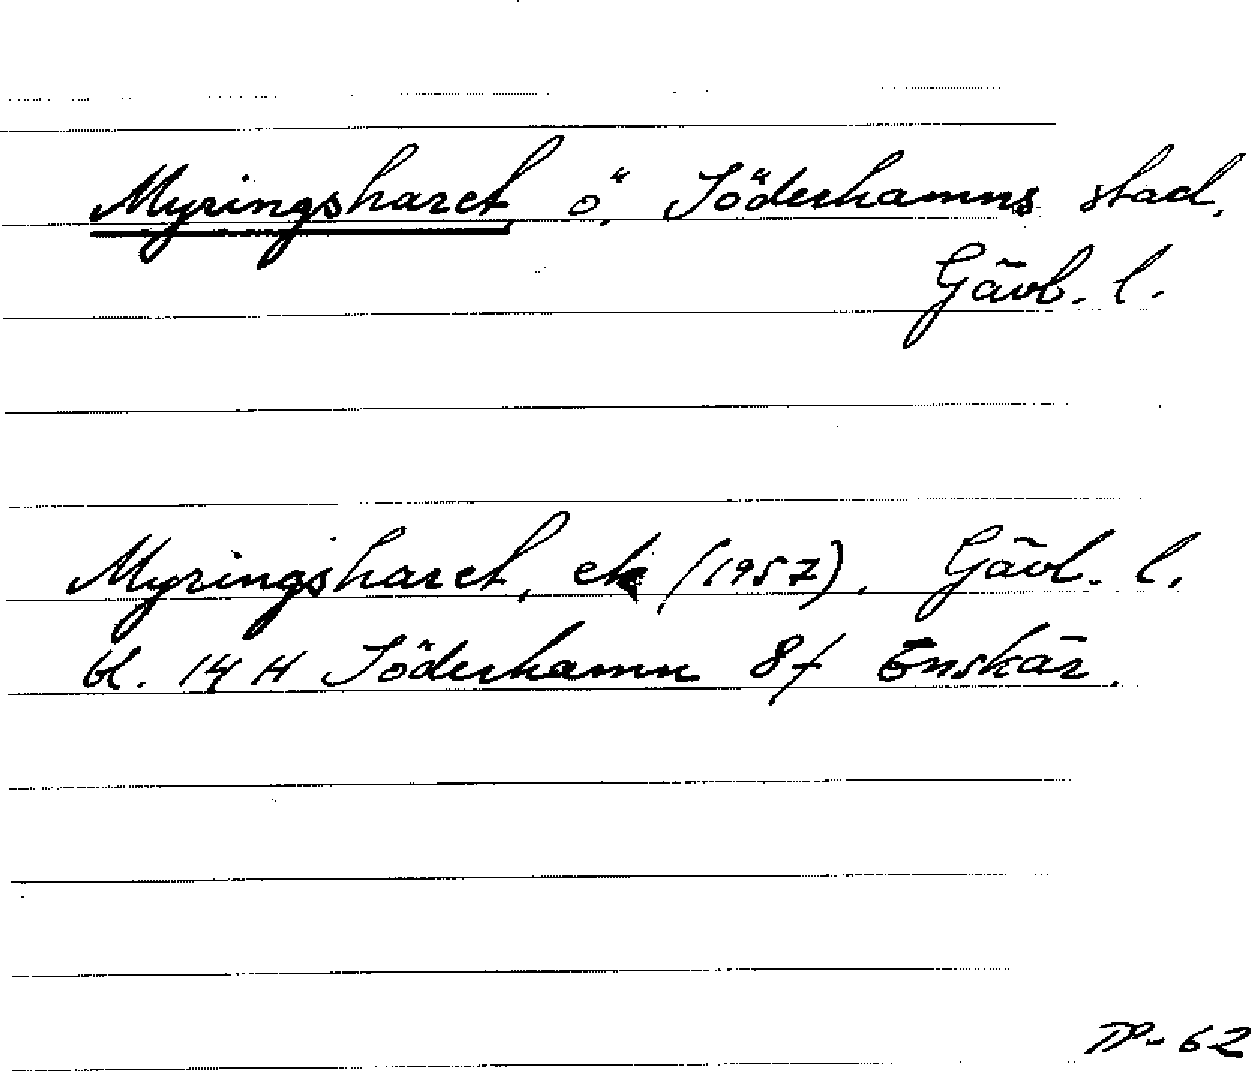 Myringsharet, ö, Söderhamns stad,
Gävb. l.
Myringsharet, ek (1957), Gävl. l.
bl. 14 H Söderhamn 8f Enskär.
TP-62